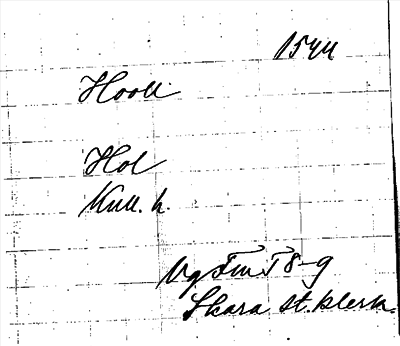 1544
Hooll
Hol
Kull. h.
Vg Fm T 8-9
Skara st. klerk.